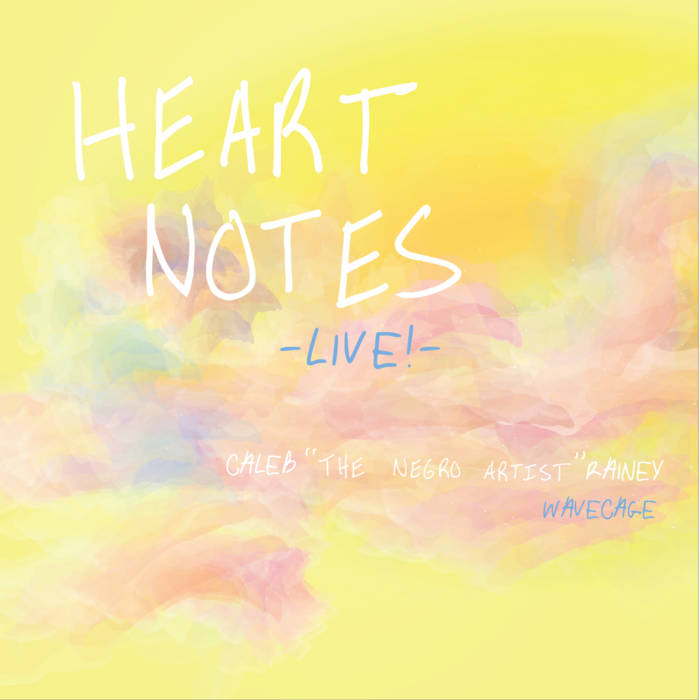 HEART
NOTES
-LIVE!-
CALEB "THE NEGRO ARTIST" RAINEY
WAVECAGE